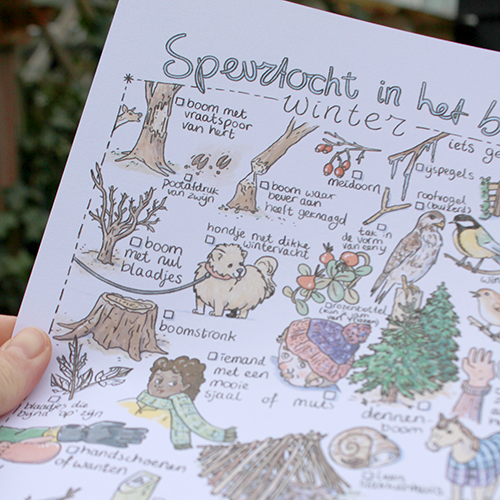 Speurtocht in het b
winter
iets ge
boom met
vraatspoor
van hert
pootafdruk
van zwijn
boom waar
bever aan
heeft geknaagd
meidoorn
ijspegels
roofvogel
(buizerd)
tak in
de vorm
van een y
boom
met nul
blaadjes
hondje met dikke
wintervacht
rozenbottel
boomstronk
iemand
met een
mooie
sjaal of muts
dennen-
boom
blaadjes die
bijna 'op' zijn
handschoenen
of wanten